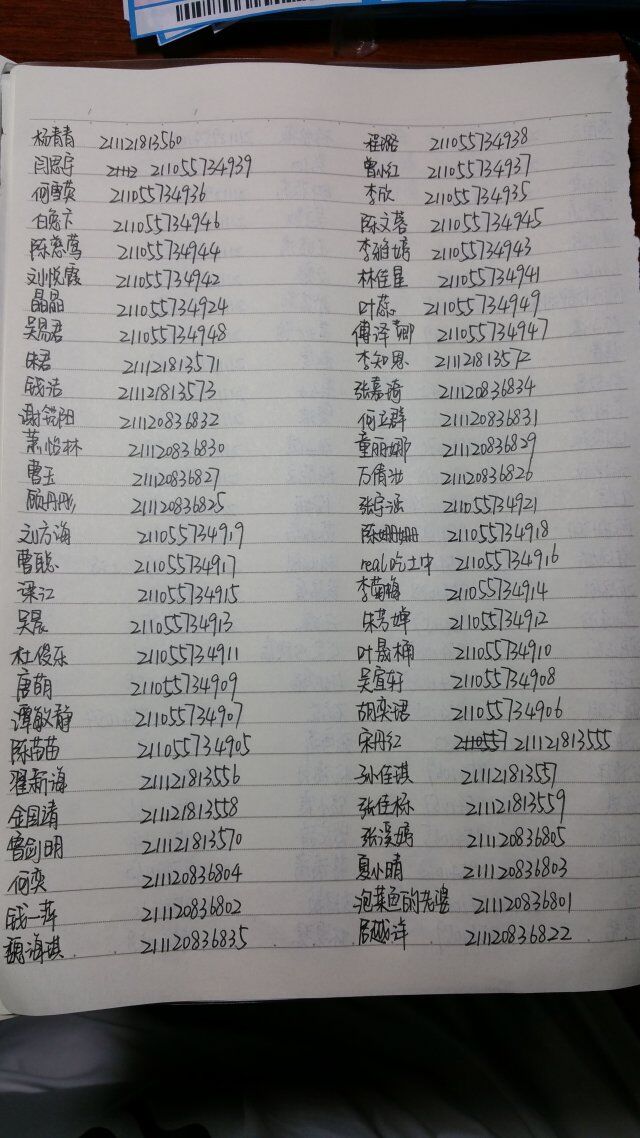 杨青青 211121813560 程璐 211055734938
闫思宇 211055734939 曾小红 211055734937
何雪英 211055734936 李欣 211055734935
211055734946 陈文蓉 211055734945
陈慈莺 211055734944 李雅婷 211055734943
刘悦霞 211055734942 林佳星 211055734941
晶晶 211055734924 叶蔚 211055734949
吴易君 211055734948 傅泽卿 211055734947
朱君 211121813571 李知恩 211121813572
钱洁 211121813573 张嘉漪 211120836834
谢锐阳 211120836832 何立群 211120836831
萧怡林 211120836830 童丽娜 211120836829
曹玉 211120836827 万倩汝 211120836826
顾丹彤 211120836825 张宇涵 211055734921
刘方海 211055734919 陈姗姗 211055734918
曹聪 211055734917 real吃土中 211055734916
梁江 211055734915 李菊梅 211055734914
吴晨 211055734913 朱芳婵 211055734912
杜俊乐 211055734911 叶晟桶 211055734910
唐萌 211055734909 吴宜轩 211055734908
谭敏静 211055734907 胡奕珺 211055734906
陈苗苗 211055734905 宋丹红 211121813555
翟新海 211121813556 孙佳琪 211121813557
金国靖 211121813558 张佳栎 211121813559
曾剑明 211121813570 张溪嫣 211120836805
何奕 211120836804 夏小晴 211120836803
钱一萍 211120836802 泡菜鱼的老婆 211120836801
魏海琪 211120836835 屈越洋 211120836822